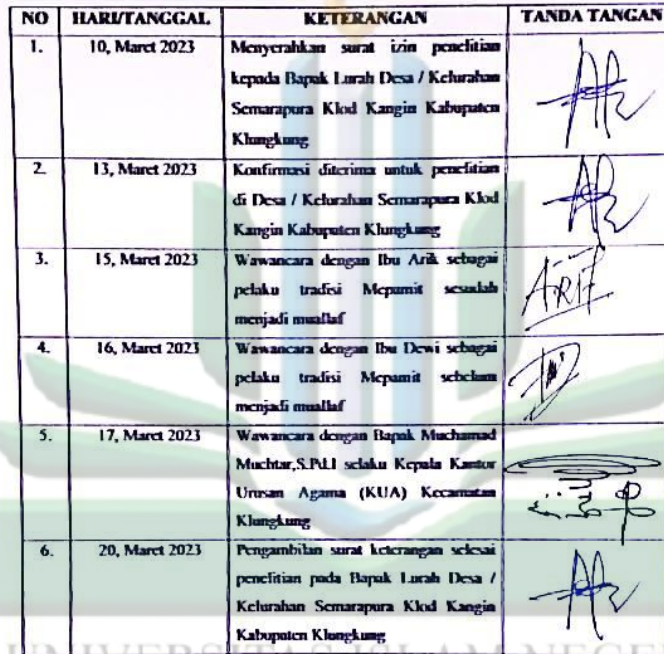 NO HARI/TANGGAL KETERANGAN TANDA TANGAN
1. 10, Maret 2023 Menyerahkan surat izin penelitian
kepada Bapak Lurah Desa / Kelurahan
Semarapura Klod Kangin Kabupaten
Klungkung
2. 13, Maret 2023 Konfirmasi diterima untuk penelitian
di Desa / Kelurahan Semarapura Klod
Kangin Kabupaten Klungkung
3. 15, Maret 2023 Wawancara dengan Ibu Arik sebagai
pelaku tradisi Mepamit sesudah
menjadi muallaf
ARIF
4. 16, Maret 2023 Wawancara dengan Ibu Dewi sebagai
pelaku tradisi Mepamit sebelum
menjadi muallaf
5. 17, Maret 2023 Wawancara dengan Bapak Muchamad
Muchtar,S.Pd.I selaku Kepala Kantor
Urusan Agama (KUA) Kecamatan
Klungkung
6. 20, Maret 2023 Pengambilan surat keterangan selesai
penelitian pada Bapak Lurah Desa /
Kelurahan Semarapura Klod Kangin
Kabupaten Klungkung
UNIVERSITAS ISLAM NEGERI